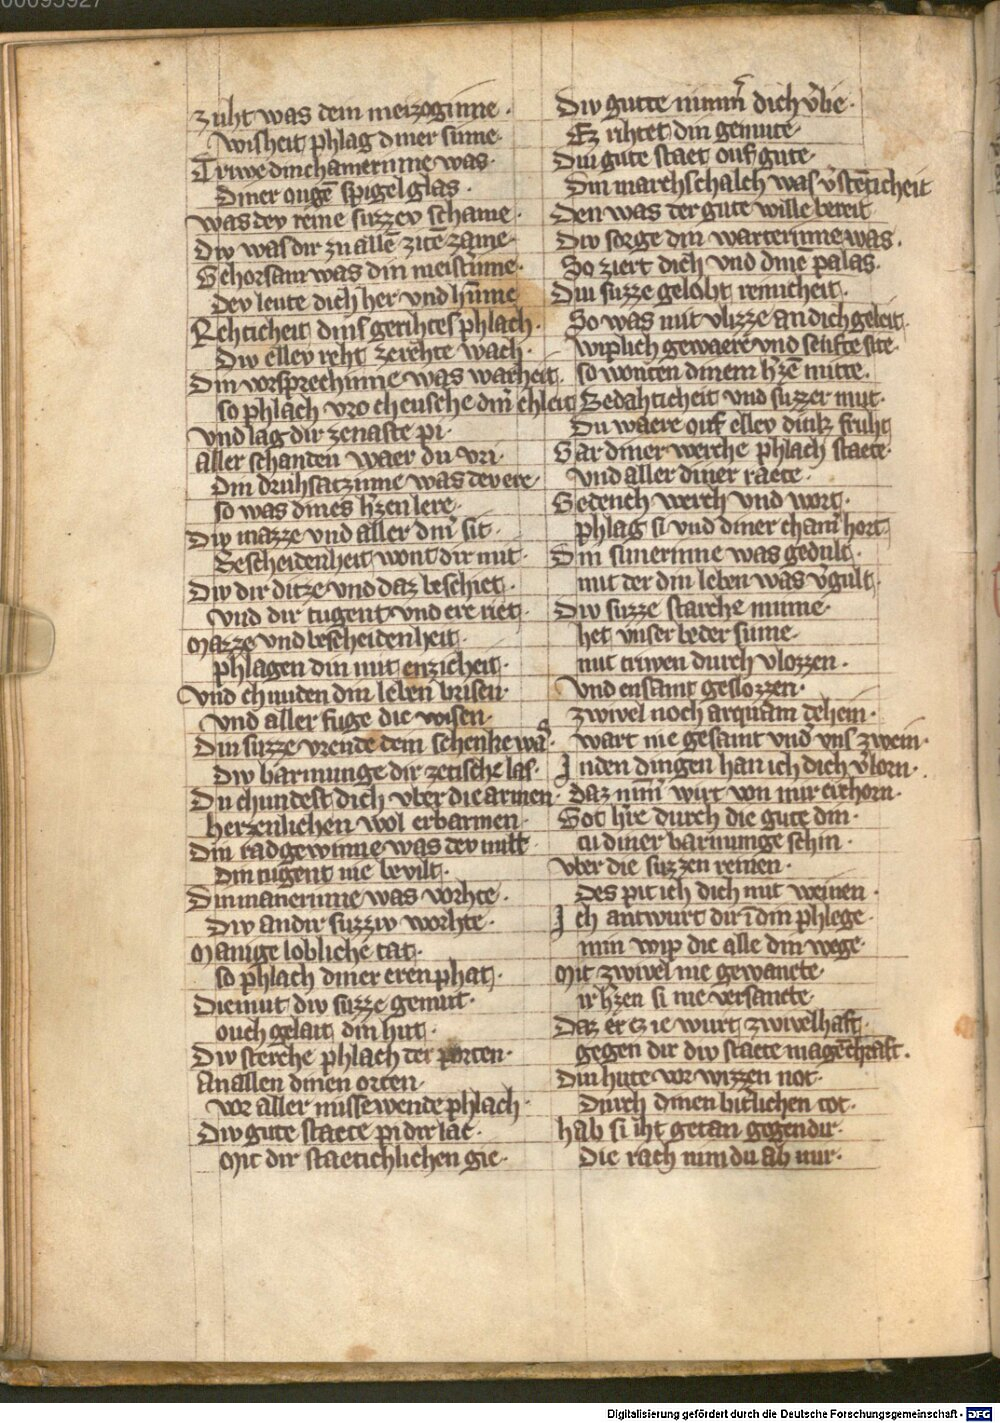 00095927
zuht was dem meizoginne ·
wisheit phlag diner sinne ·
Triwe din chamerinne was ·
Diner ougē spigel glas ·
was dev reine suzzev schame ·
Div was dir zu allē zitē zame ·
Gehorsam was din meist'inne ·
dev leute dich her vnd hinne
Rehticheit dins gerihtes phlach ·
Div ellev reht zerehte wach ·
Din vorsprechinne was warheit ·
so phlach vro cheusche din' chleit
vnd lag dir zenaste pi ·
aller schanden waer du vri ·
Din druhsatzinne was dev ere ·
so was dines h'zen lere ·
Div mazze vnd aller din' sit ·
Bescheidenheit wont dir mit ·
Div dir ditze vnd daz beschiet ·
vnd dir tugent vnd ere riet ·
Mazze vnd bescheidenheit ·
phlagen din mit enzicheit ·
Vnd chunden din leben brisen ·
vnd aller fuge die wisen ·
Din suzze vrende dem schenke was ·
Div barmunge dir zetische las ·
Du chundest dich vber die armen ·
herzenlichen wol erbarmen ·
Din radgewinne was dev milt
Din tugent nie bevilt ·
Din manerinne was vorhte ·
Div an dir suzziv worhte ·
Manige lobliche tat ·
so phlach diner eren phat ·
Diemut div suzze gemut ·
ouch gelait din hut ·
Div sterche phlach der porten ·
An allen dinen orten ·
vor aller missewende phlach ·
Div gute staete pi dir lac ·
Mit dir staetichlichen gie ·
Div gutte nimm' dich v'lie ·
Ez rihtet din gemute ·
Din gute staet ouf gute ·
Din marchschalch was v'stēticheit
Den was der gute wille bereit
Div sorge din warterinne was ·
So ziert dich vnd dinē palas ·
Din suzze geloht reinicheit ·
So was mit vlizze an dich geleit ·
wiplich gewaere vnd senfte site ·
so wonten dinem h'zē mitte ·
Gedahticheit vnd suzzer mut ·
Du waere ouf ellev dink fruht
Gar diner werche phlach staete ·
vnd aller diner raete ·
Gedench werch vnd wort ·
phlag si vnd diner cham' hort ·
Din sinnerinne was gedult ·
mit der din leben was v'gult ·
Div suzze starche minne ·
het vnser beder sinne ·
mit triwen durch vlozzen ·
Vnd ensamt geslozzen ·
zwivel noch arquam dehein ·
wart nie gesamt vnd' vns zwein ·
In den dingen han ich dich v'lorn ·
daz nim' wirt von mir erchorn ·
Got h're durch die gute din ·
tu diner barmunge schin ·
vber die suzzen reinen ·
Des pit ich dich mit weinen ·
Ich antwurt dir ī din phlege ·
min wip die alle din wege ·
Mit zwivel nie gewancte ·
ir h'zen si nie versancte ·
Daz er ez ie wurt zwivelhaft ·
gegen dir div staete magēchraft ·
Din hute vor wizzen not ·
Durch dinen bitlichen tot ·
hab si iht getan gegen dir ·
Die rach nim du ab mir ·
Digitalisierung gefördert durch die Deutsche Forschungsgemeinschaft - DFG